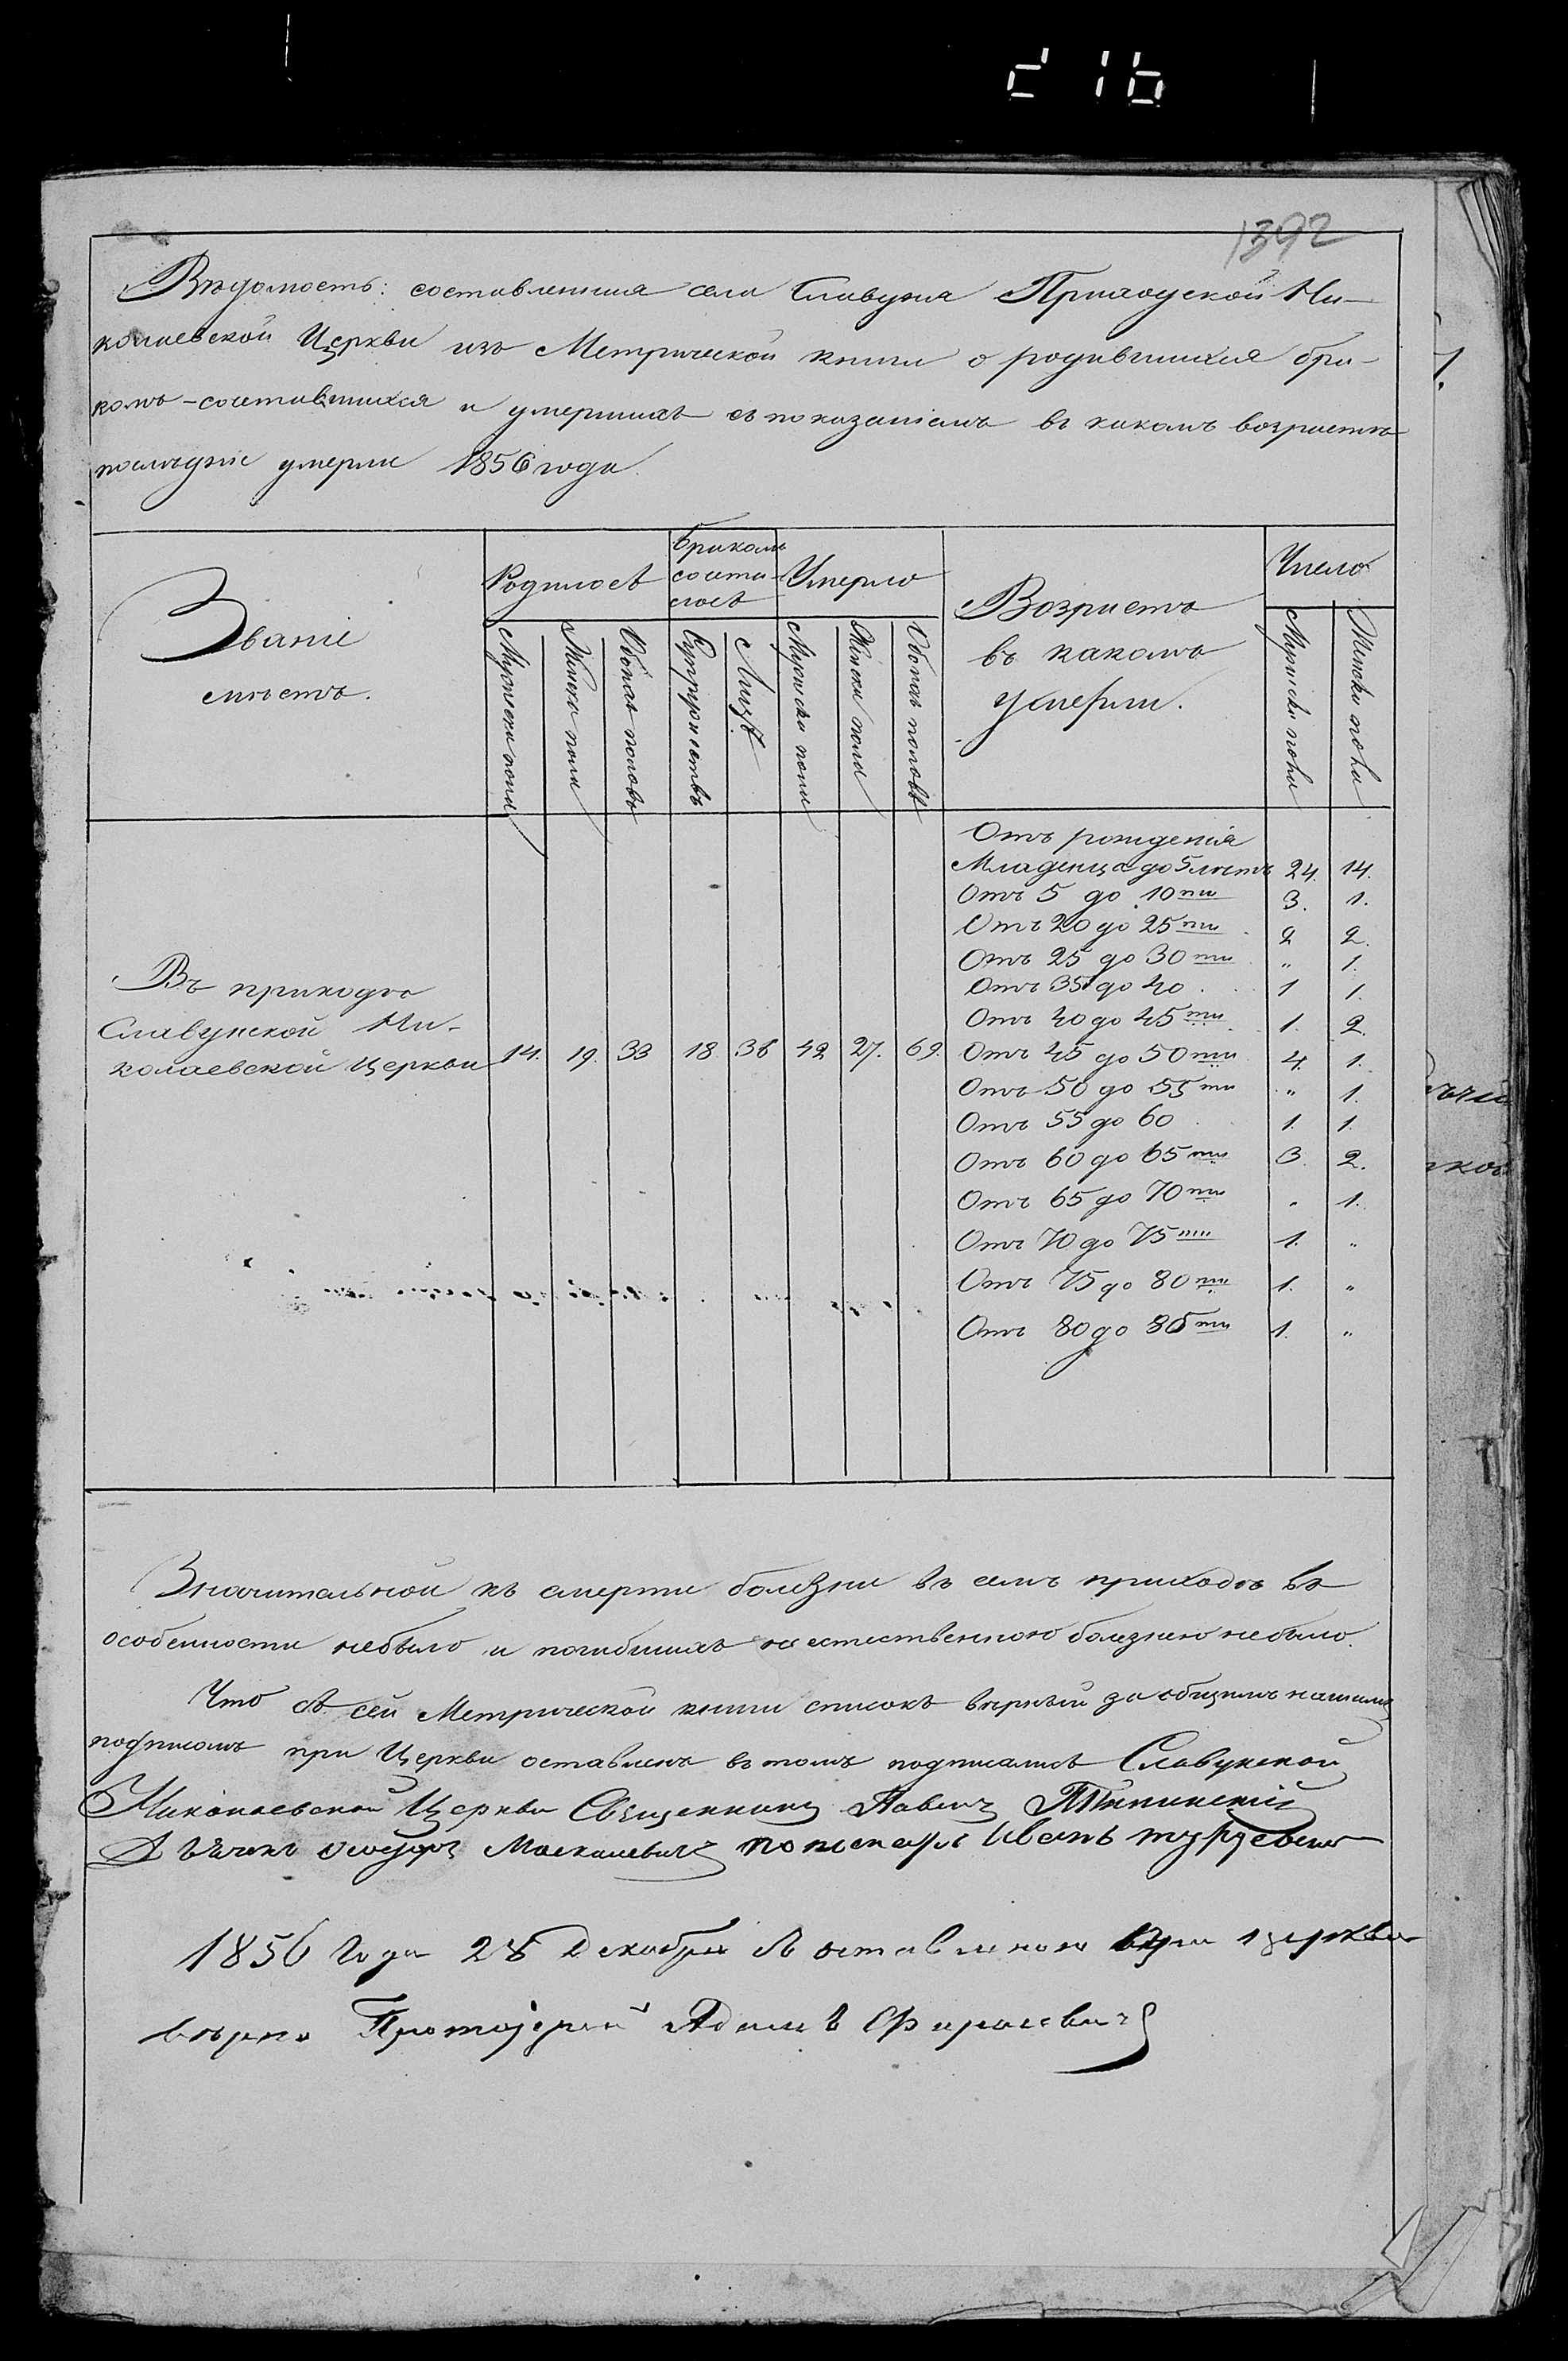 1392
Вѣдомость: составленная села Славуня Приходской Ни-
колаевской Церкви изъ Метрической книги о родившихся бра-
комъ-сочетавшихся и умершихъ съ показаніемъ въ какомъ возрастѣ
послѣдніе умерли 1856 года.
Званіе мѣстъ.
Родилось
Бракомъ сочета-лось
Умерло
Возрастъ въ какомъ умерли.
Число
Мужеска пола
Женска пола
Обоихъ половъ
Супружествъ
Лицъ
Мужеска пола
Женска пола
Обоихъ половъ
Мужеска пола
Женска пола
Въ приходѣ
Славунской Ни-
колаевской Церкви 14. 19. 33 18 36 42 27. 69.
Отъ рожденія
Младенца до 5 лѣтъ 24. 14.
Отъ 5 до 10ти 3. 1.
Отъ 20 до 25ти 2 2.
Отъ 25 до 30ти " 1.
Отъ 35 до 40 1 1.
Отъ 40 до 45ти 1. 2.
Отъ 45 до 50ти 4. 1.
Отъ 50 до 55ти " 1.
Отъ 55 до 60 1. 1.
Отъ 60 до 65ти 3. 2.
Отъ 65 до 70ти " 1.
Отъ 70 до 75ти 1. "
Отъ 75 до 80ти 1. "
Отъ 80 до 85ти 1. "
Значительной къ смерти болезни въ семъ приходѣ въ
особенности небыло и погибшихъ не естественною болезнею небыло.
Что съ сей Метрической книги списокъ вѣрный за общимъ нашимъ
подписомъ при Церкви оставленъ въ томъ подписались Славунской
Николаевской Церкви Священникъ Павелъ
Дьячекъ Ѳеодоръ Москалевичъ пономарь Иванъ
1856 Года 28 Декабря при церкви
вѣрно Протоіерей Адамъ